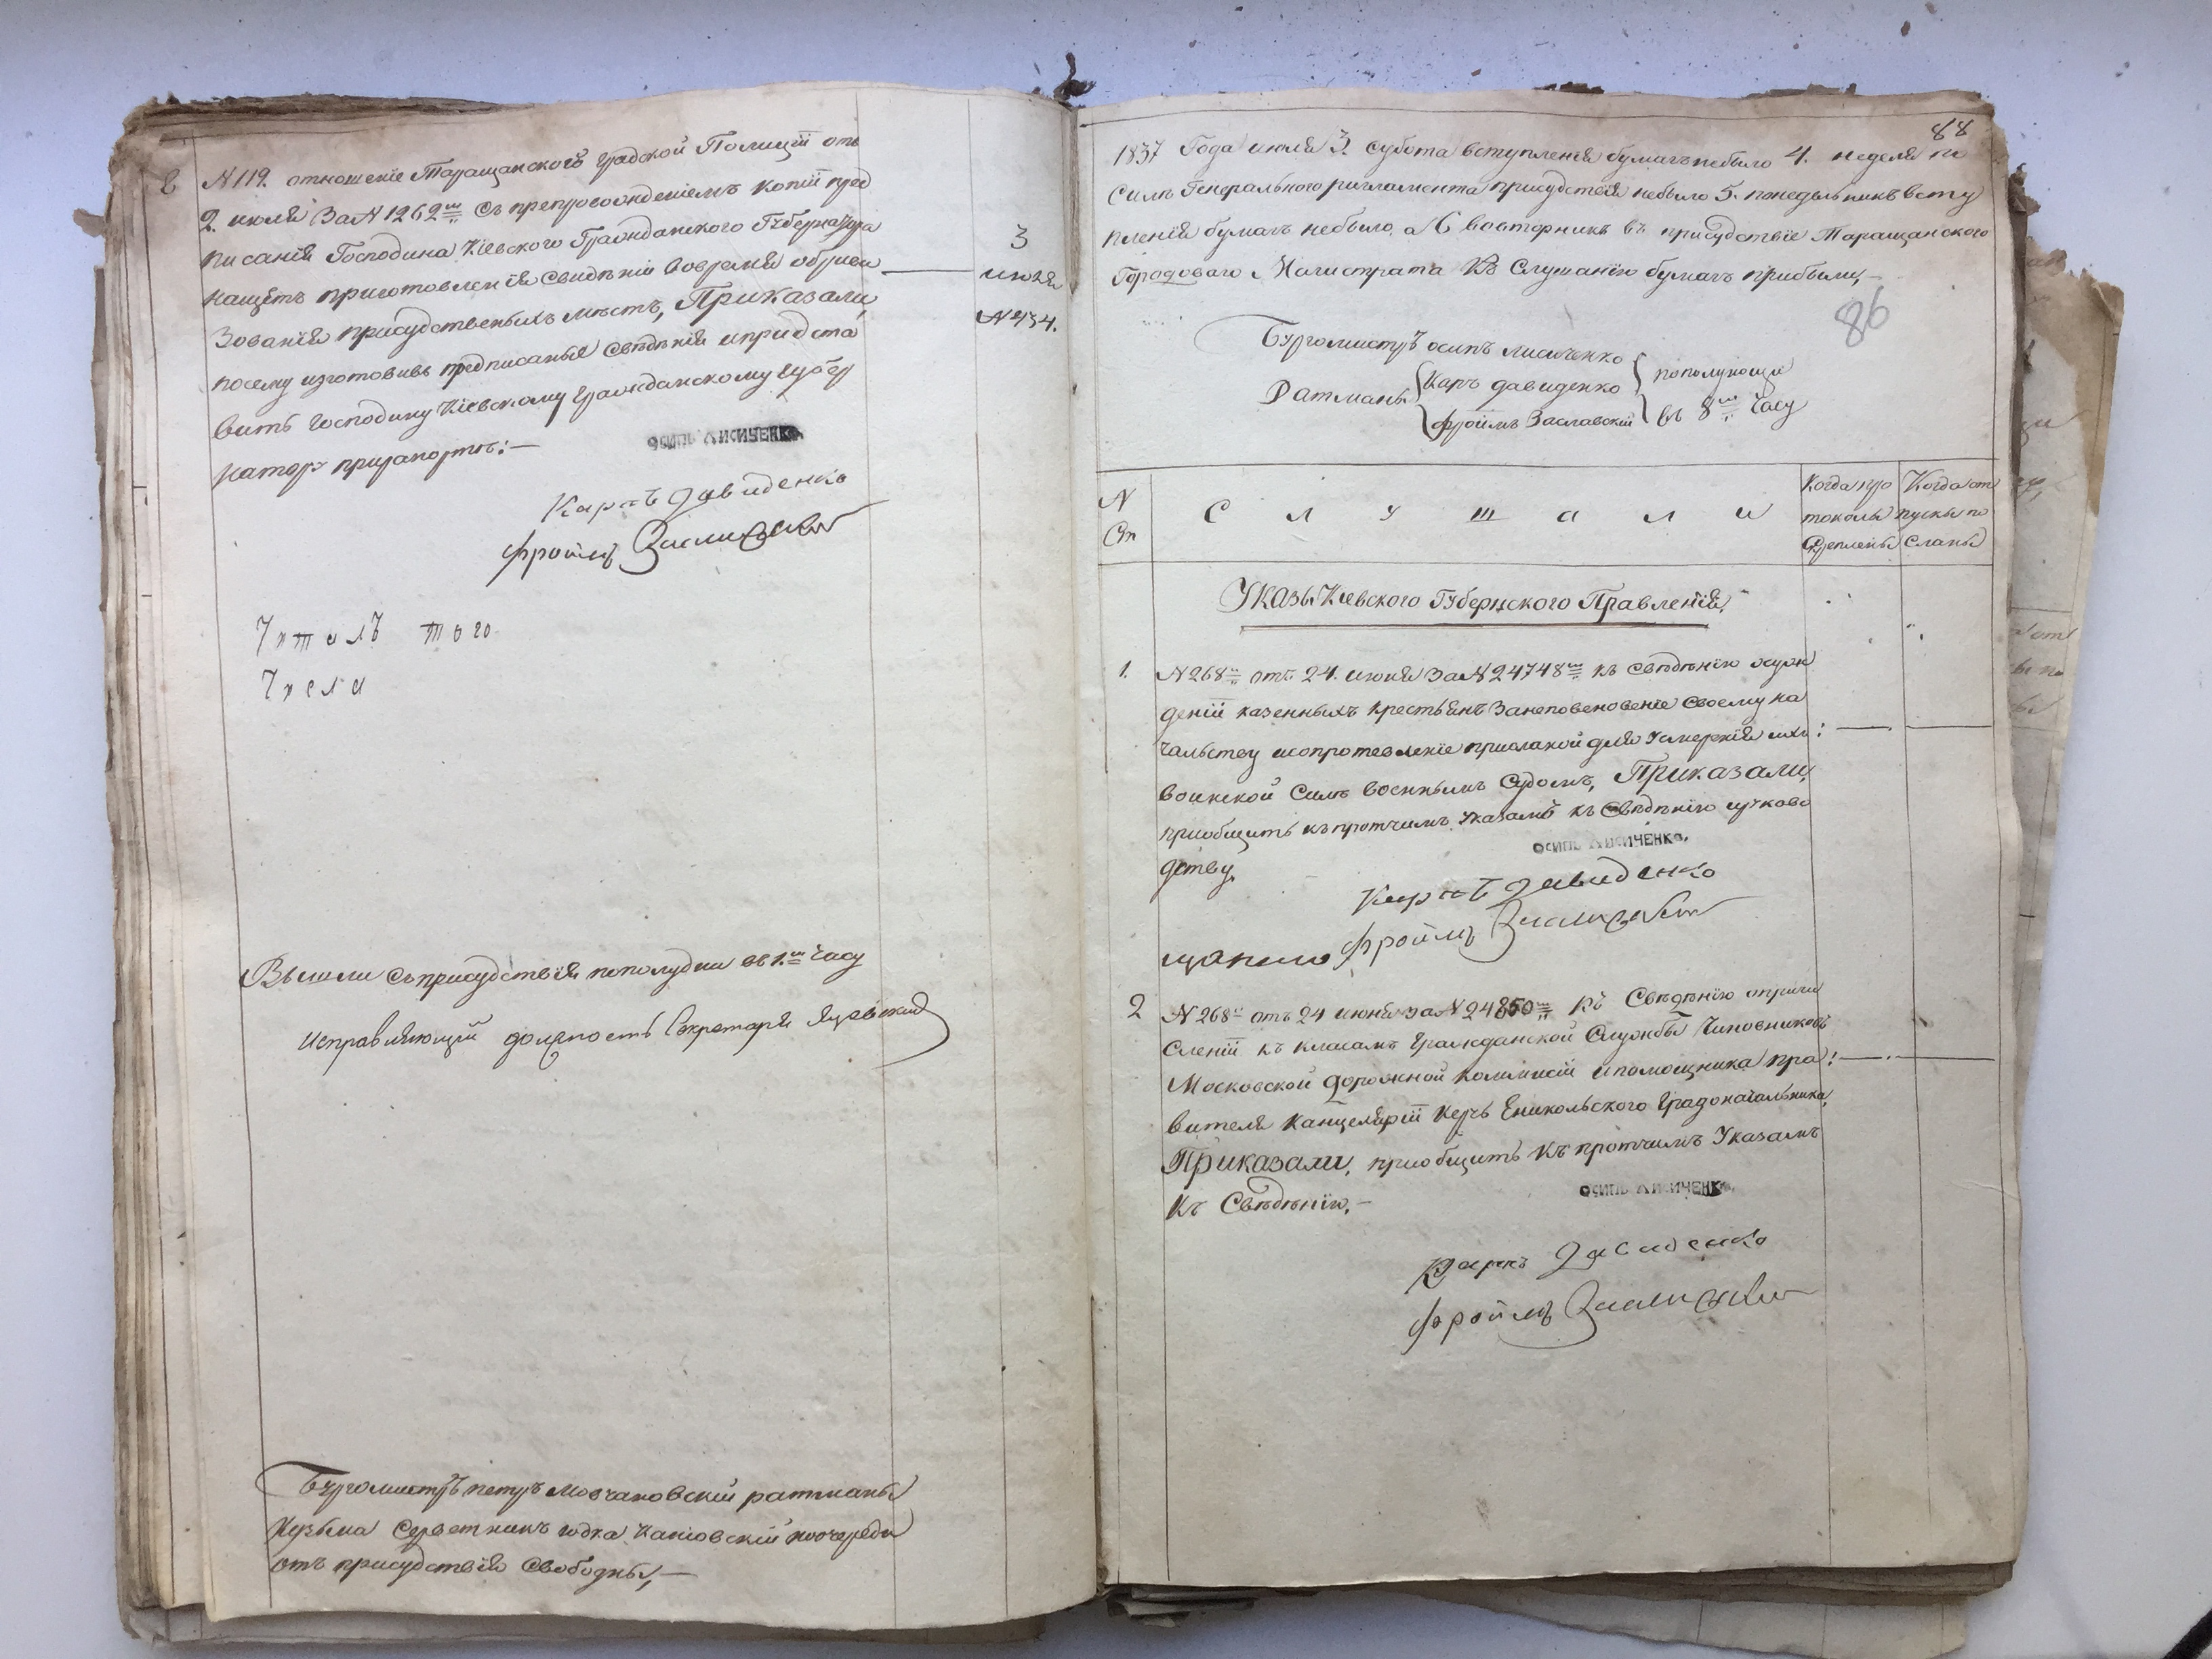 в №119. отношеніе Таращанской градской Полиціи отъ
2. июля за №1262м съ препровожденіемъ копіи пред
писанія Господина Кіевского Гражданского Губернатора
насчетъ приготовленія свиденію вовремя обреви
зованія присудственныхъ местъ, Приказали,
посему изготовивъ предписаныя сведенія и предста
вить господину Кіевскому Гражданскому Губер
натору прирапорте:—
3
июля
№434.
ОСИПЪ ЛИСИЧЕНКО
Карпъ Давиденко
Фроимъ Заславский
Читалъ того
Числа
Вышли съ присудствія пополудни въ 1.м часу
Исправляющій должность Секретаря
Бургомистръ петръ Мовчановскій ратманы
Кузьма Серветникъ юдка Каніовскій поочереди
отъ присудствія свободны,—
88
1837 Года июля 3. субота вступленія бумагъ небыло 4. неделя по
силе Генерального регламента присудствія небыло 5. понедельникъ всту
пленія бумагъ небыло, а 6 вовторникъ въ присудствіе Таращанского
Городоваго Магистрата Къ Слушанію бумагъ прибыли,—
86
Бургомистръ осипъ лисиченко
Ратманы Карпъ давиденко пополуноци
фроимъ Заславскій въ 8м часу
№ Ст
С л у ш а л и
Когда про токолы скреплены
Когда от пуски по сланы
Указы Кіевского Губернского Правленія,
1. №268м отъ 24. июня за №24748м къ сведенію осуж
деніи казенныхъ крестьянъ за неповеновение своему на
чальству и сопротевленіе присланой для усмеренія ихъ:
воинской силе военнымъ судомъ, Приказали,
приобщить къ протчимъ указамъ къ сведенію и руково
дству.
ОСИПЪ ЛИСИЧЕНКО,
Карпъ Давиденко
Фроимъ Заславский
2 №268м отъ 24 июня за №24850м къ Сведенію о причи
сленіи къ класамъ Гражданской Службы Чиновниковъ
Московской дорожной комиисіи и помощника пра:
вителя канцеляріи Керчь Еникольского Градоначальника,
Приказали, приобщить къ протчимъ Указамъ
къ Сведенію,—
ОСИПЪ ЛИСИЧЕНКО,
Карпъ Давиденко
Фроимъ Заславский